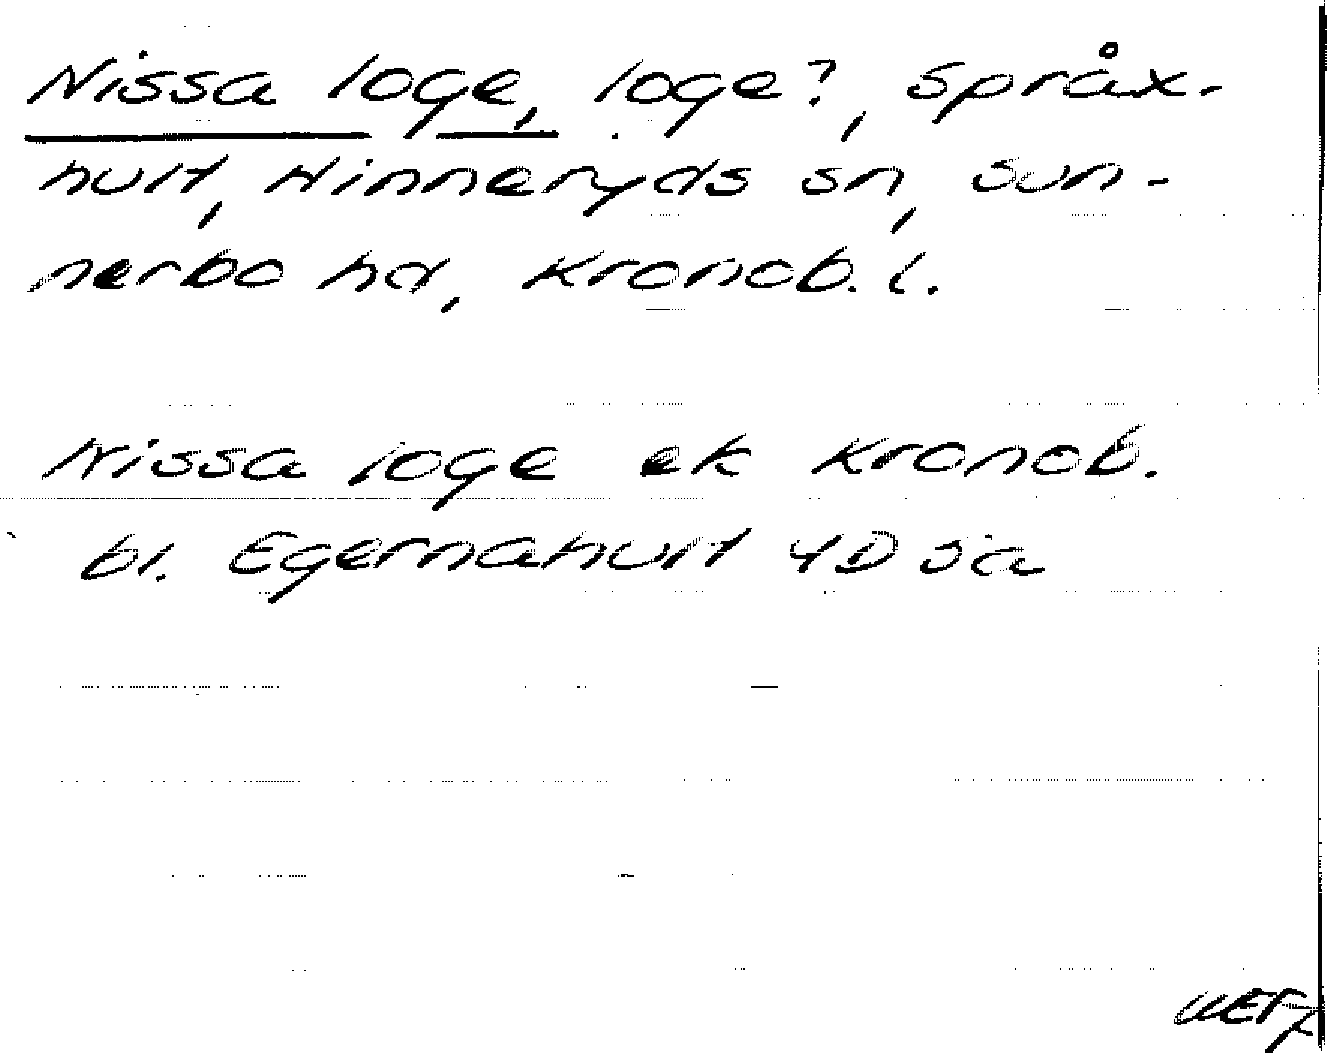 Nissa loge, loge?, Språx-
hult, Hinneryds sn, Sun-
nerbo hd, Kronob. l.
Nissa loge ek Kronob.
bl. Egernahult 4D 5a